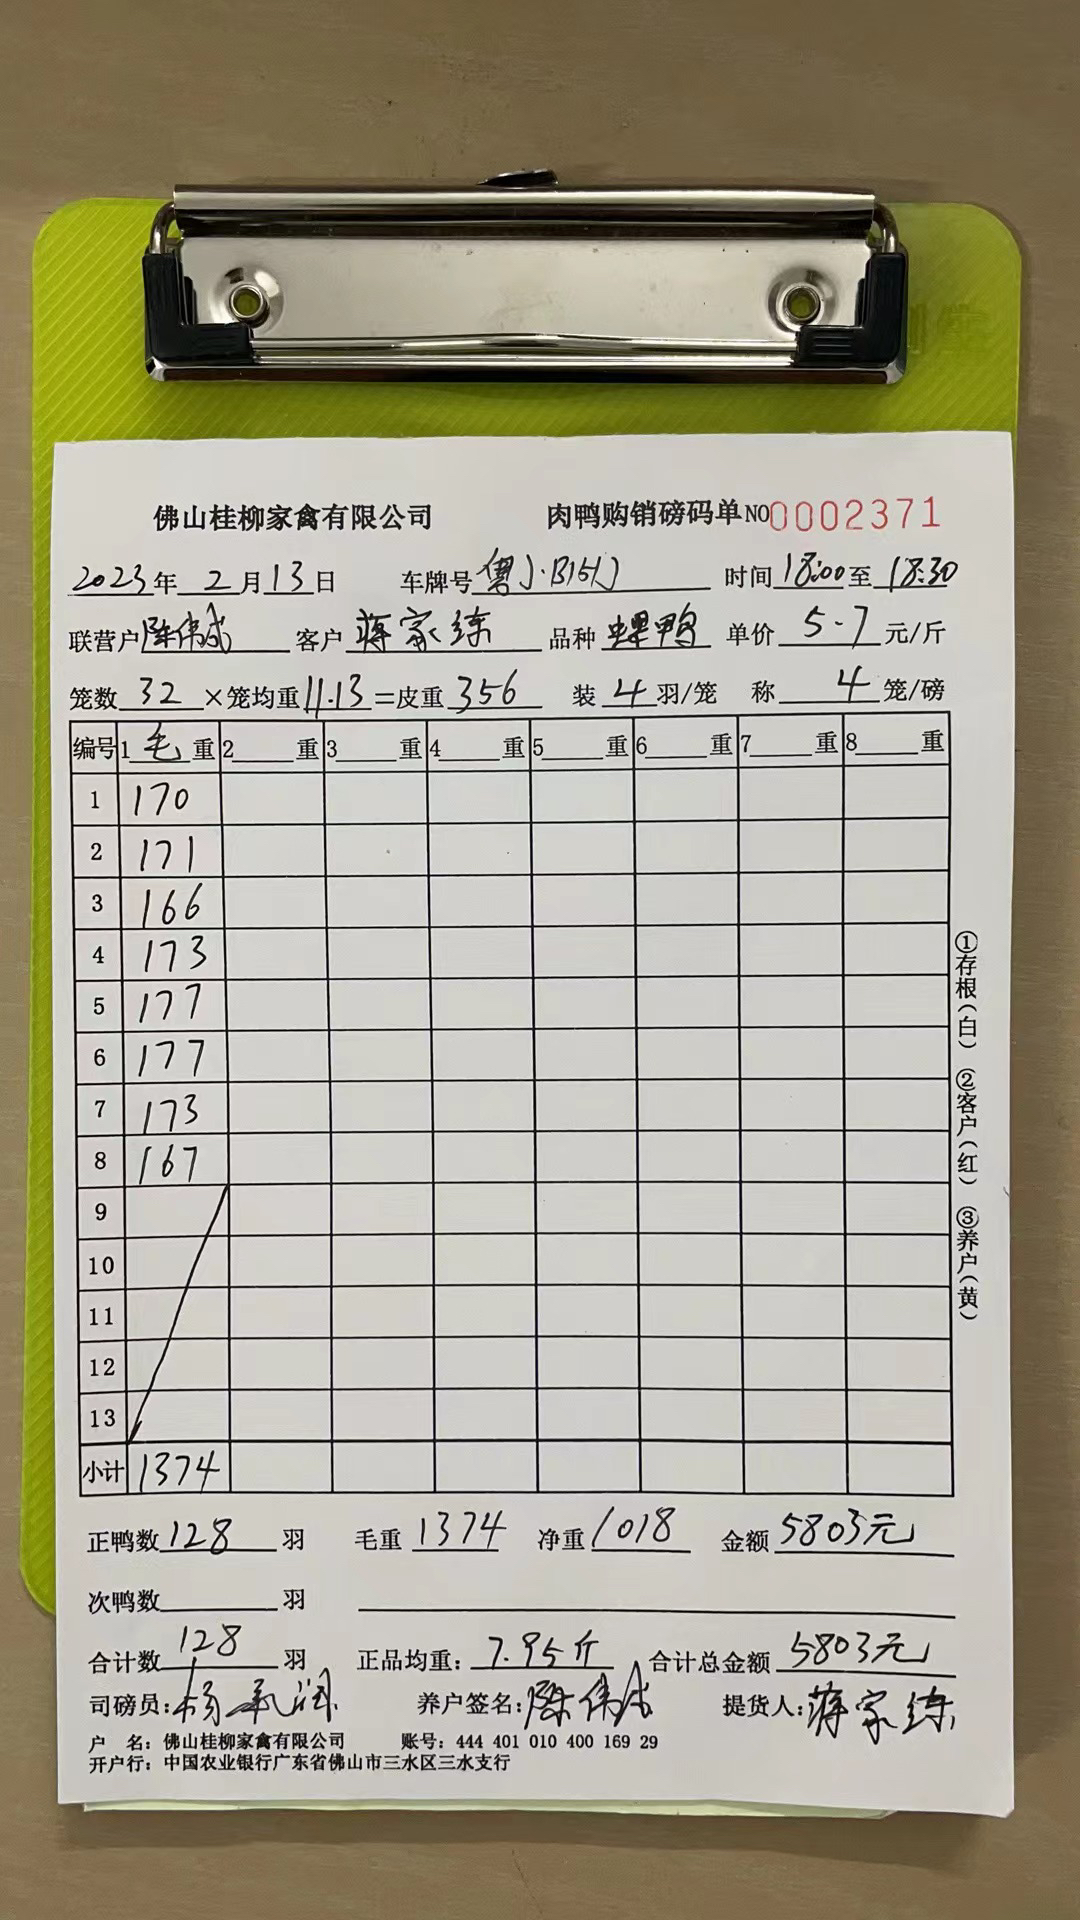 佛山桂柳家禽有限公司 肉鸭购销磅码单 NO 0002371
2023年 2月 13日 车牌号 粤 时间 18:00 至 18:30
联营户 陈伟成 客户 蒋家练 品种 螺鸭 单价 5.7 元/斤
笼数 32 ×笼均重 11.13 =皮重 356 装 4 羽/笼 称 4 笼/磅
编号 1 毛 重 2 重 3 重 4 重 5 重 6 重 7 重 8 重
1 170
2 171
3 166
4 173
5 177
6 177
7 173
8 167
9
10
11
12
13
小计 1374
①存根(白) ②客户(红) ③养户(黄)
正鸭数 128 羽 毛重 1374 净重 1018 金额 5803元
次鸭数 羽
合计数 128 羽 正品均重: 7.95斤 合计总金额 5803元
司磅员: 杨 养户签名: 陈伟成 提货人: 蒋家练
户 名: 佛山桂柳家禽有限公司 账号: 444 401 010 400 169 29
开户行: 中国农业银行广东省佛山市三水区三水支行